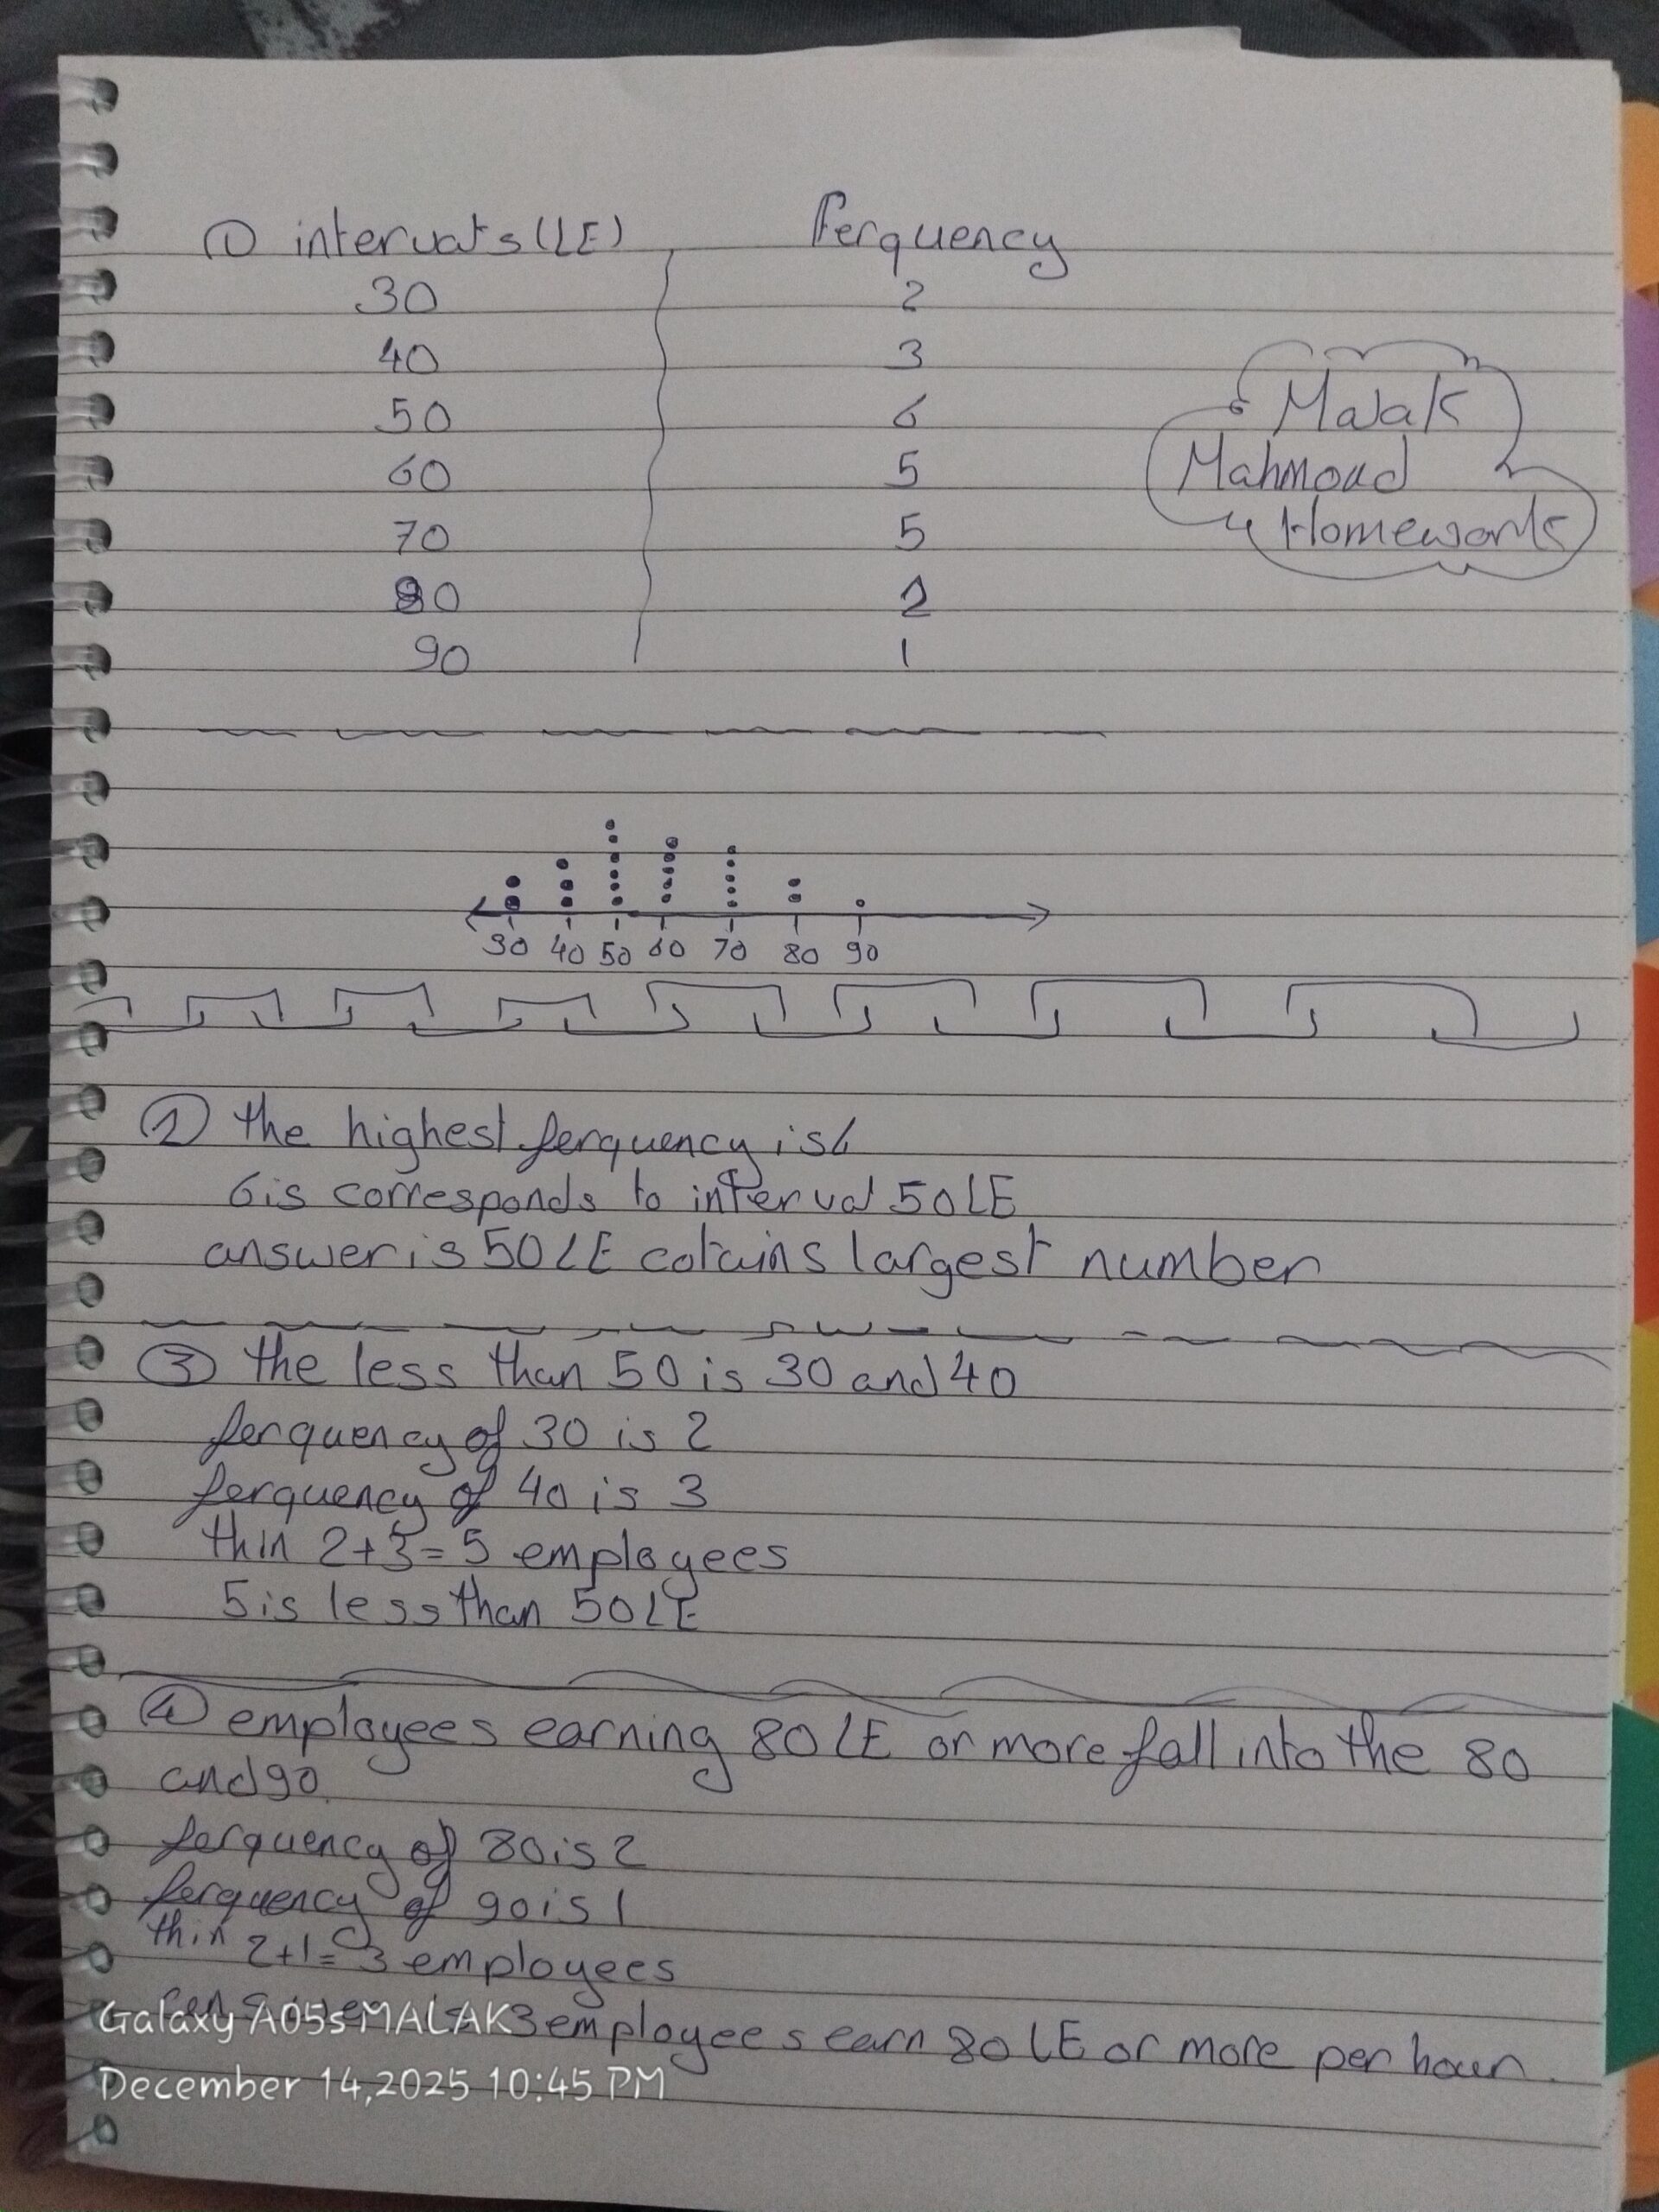 ① intervals (LE) ferquency
30 2
40 3
50 6
60 5
70 5
80 2
90 1
Malak
Mahmoud
Homework
30 40 50 60 70 80 90
② the highest ferquency is 6
6 is corresponds to interval 50 LE
answer is 50 LE cotains largest number
③ the less than 50 is 30 and 40
ferquency of 30 is 2
ferquency of 40 is 3
thin 2+3=5 employees
5 is less than 50 LE
④ employees earning 80 LE or more fall into the 80
and 90.
ferquency of 80 is 2
ferquency of 90 is 1
thin 2+1=3 employees
3 employees earn 80 LE or more per hour.
Galaxy A05s MALAK
December 14,2025 10:45 PM